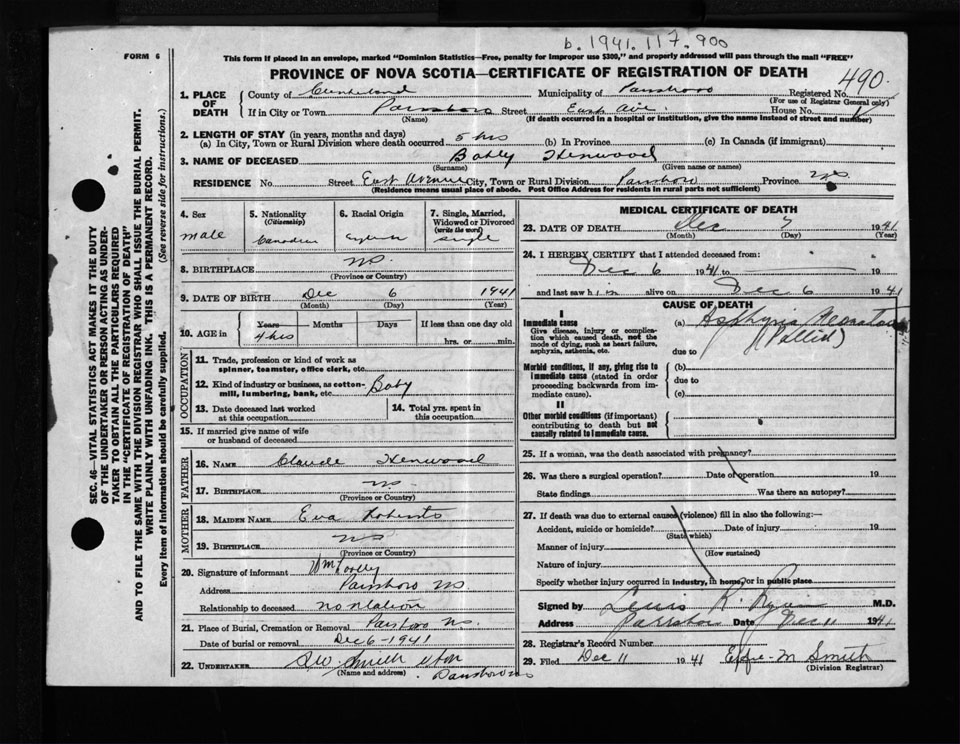 b. 1941. 117. 900
FORM 6
This form if placed in an envelope, marked "Dominion Statistics—Free, penalty for improper use $300," and properly addressed will pass through the mail "FREE"
PROVINCE OF NOVA SCOTIA—CERTIFICATE OF REGISTRATION OF DEATH
490.
1. PLACE OF DEATH
County of Cumberland Municipality of Parrsboro Registered No.
(For use of Registrar General only)
If in City or Town Parrsboro Street East Ave. House No.
(Name) (If death occurred in a hospital or institution, give the name instead of street and number)
2. LENGTH OF STAY (in years, months and days)
(a) In City, Town or Rural Division where death occurred 5 hrs (b) In Province (c) In Canada (if immigrant)
3. NAME OF DECEASED Henwood
(Surname) (Given name or names)
RESIDENCE No. Street East Avenue City, Town or Rural Division Parrsboro Province N.S.
(Residence means usual place of abode. Post Office Address for residents in rural parts not sufficient)
4. Sex
male
5. Nationality
(Citizenship)
Canadian
6. Racial Origin
English
7. Single, Married, Widowed or Divorced
(write the word)
single
8. BIRTHPLACE N.S.
(Province or Country)
9. DATE OF BIRTH Dec 6 1941
(Month) (Day) (Year)
10. AGE in
Years Months Days If less than one day old
4 hrs hrs. or min.
OCCUPATION
11. Trade, profession or kind of work as
spinner, teamster, office clerk, etc.
12. Kind of industry or business, as cotton-
mill, lumbering, bank, etc. Baby
13. Date deceased last worked
at this occupation
14. Total yrs. spent in
this occupation
15. If married give name of wife
or husband of deceased
FATHER
16. NAME Claude Henwood
17. BIRTHPLACE N.S.
(Province or Country)
MOTHER
18. MAIDEN NAME Eva Roberts
19. BIRTHPLACE N S
(Province or Country)
20. Signature of informant Wm
Address Parrsboro N S
Relationship to deceased no relation
21. Place of Burial, Cremation or Removal Parrsboro N.S.
Date of burial or removal Dec 6-1941
22. UNDERTAKER Smith
(Name and address) Parrsboro N S
MEDICAL CERTIFICATE OF DEATH
23. DATE OF DEATH Dec 7 1941
(Month) (Day) (Year)
24. I HEREBY CERTIFY that I attended deceased from:
Dec 6 1941 to 19
and last saw h im alive on Dec 6 1941
CAUSE OF DEATH
I
Immediate cause
Give disease, injury or complica-
tion which caused death, not the
mode of dying, such as heart failure,
asphyxia, asthenia, etc.
(a) Asphyxia Neonatorum
(Pallida)
due to
Morbid conditions, if any, giving rise to
immediate cause (stated in order
proceeding backwards from im-
mediate cause).
(b)
due to
(c)
II
Other morbid conditions (if important)
contributing to death but not
causally related to immediate cause.
25. If a woman, was the death associated with pregnancy?
26. Was there a surgical operation? Date of operation 19
State findings Was there an autopsy?
27. If death was due to external causes (violence) fill in also the following:—
Accident, suicide or homicide? Date of injury 19
(State which)
Manner of injury
(How sustained)
Nature of injury
Specify whether injury occurred in industry, in home, or in public place
Signed by M.D.
Address Parrsboro Date Dec 11 1941
28. Registrar's Record Number
29. Filed Dec 11 1941 Effie M Smith
(Division Registrar)
SEC. 46—VITAL STATISTICS ACT MAKES IT THE DUTY
OF THE UNDERTAKER OR PERSON ACTING AS UNDER-
TAKER TO OBTAIN ALL THE PARTICULARS REQUIRED
IN THE "CERTIFICATE OF REGISTRATION OF DEATH"
AND TO FILE THE SAME WITH THE DIVISION REGISTRAR WHO SHALL ISSUE THE BURIAL PERMIT.
WRITE PLAINLY WITH UNFADING INK. THIS IS A PERMANENT RECORD.
Every item of information should be carefully supplied. (See reverse side for instructions.)